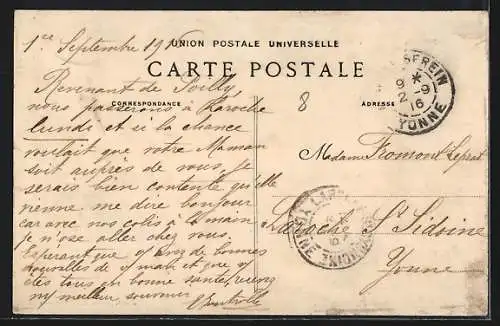 1er Septembre 1916
UNION POSTALE UNIVERSELLE
CARTE POSTALE
CORRESPONDANCE
ADRESSE
Revenant de
nous passerons à Laroche
lundi et si la chance
voulait que votre Maman
soit auprès de vous, je
serais bien contente qu'elle
vienne me dire bonjour
car avec nos colis à la main
je n'ose aller chez vous.
Espérant que de bonnes
nouvelles de et que
êtes tous en bonne santé,
meilleur souvenir
8
Madame Fromont
Laroche St Sidoine
Yonne
SEREIN
9 *
2 -9
16
YONNE